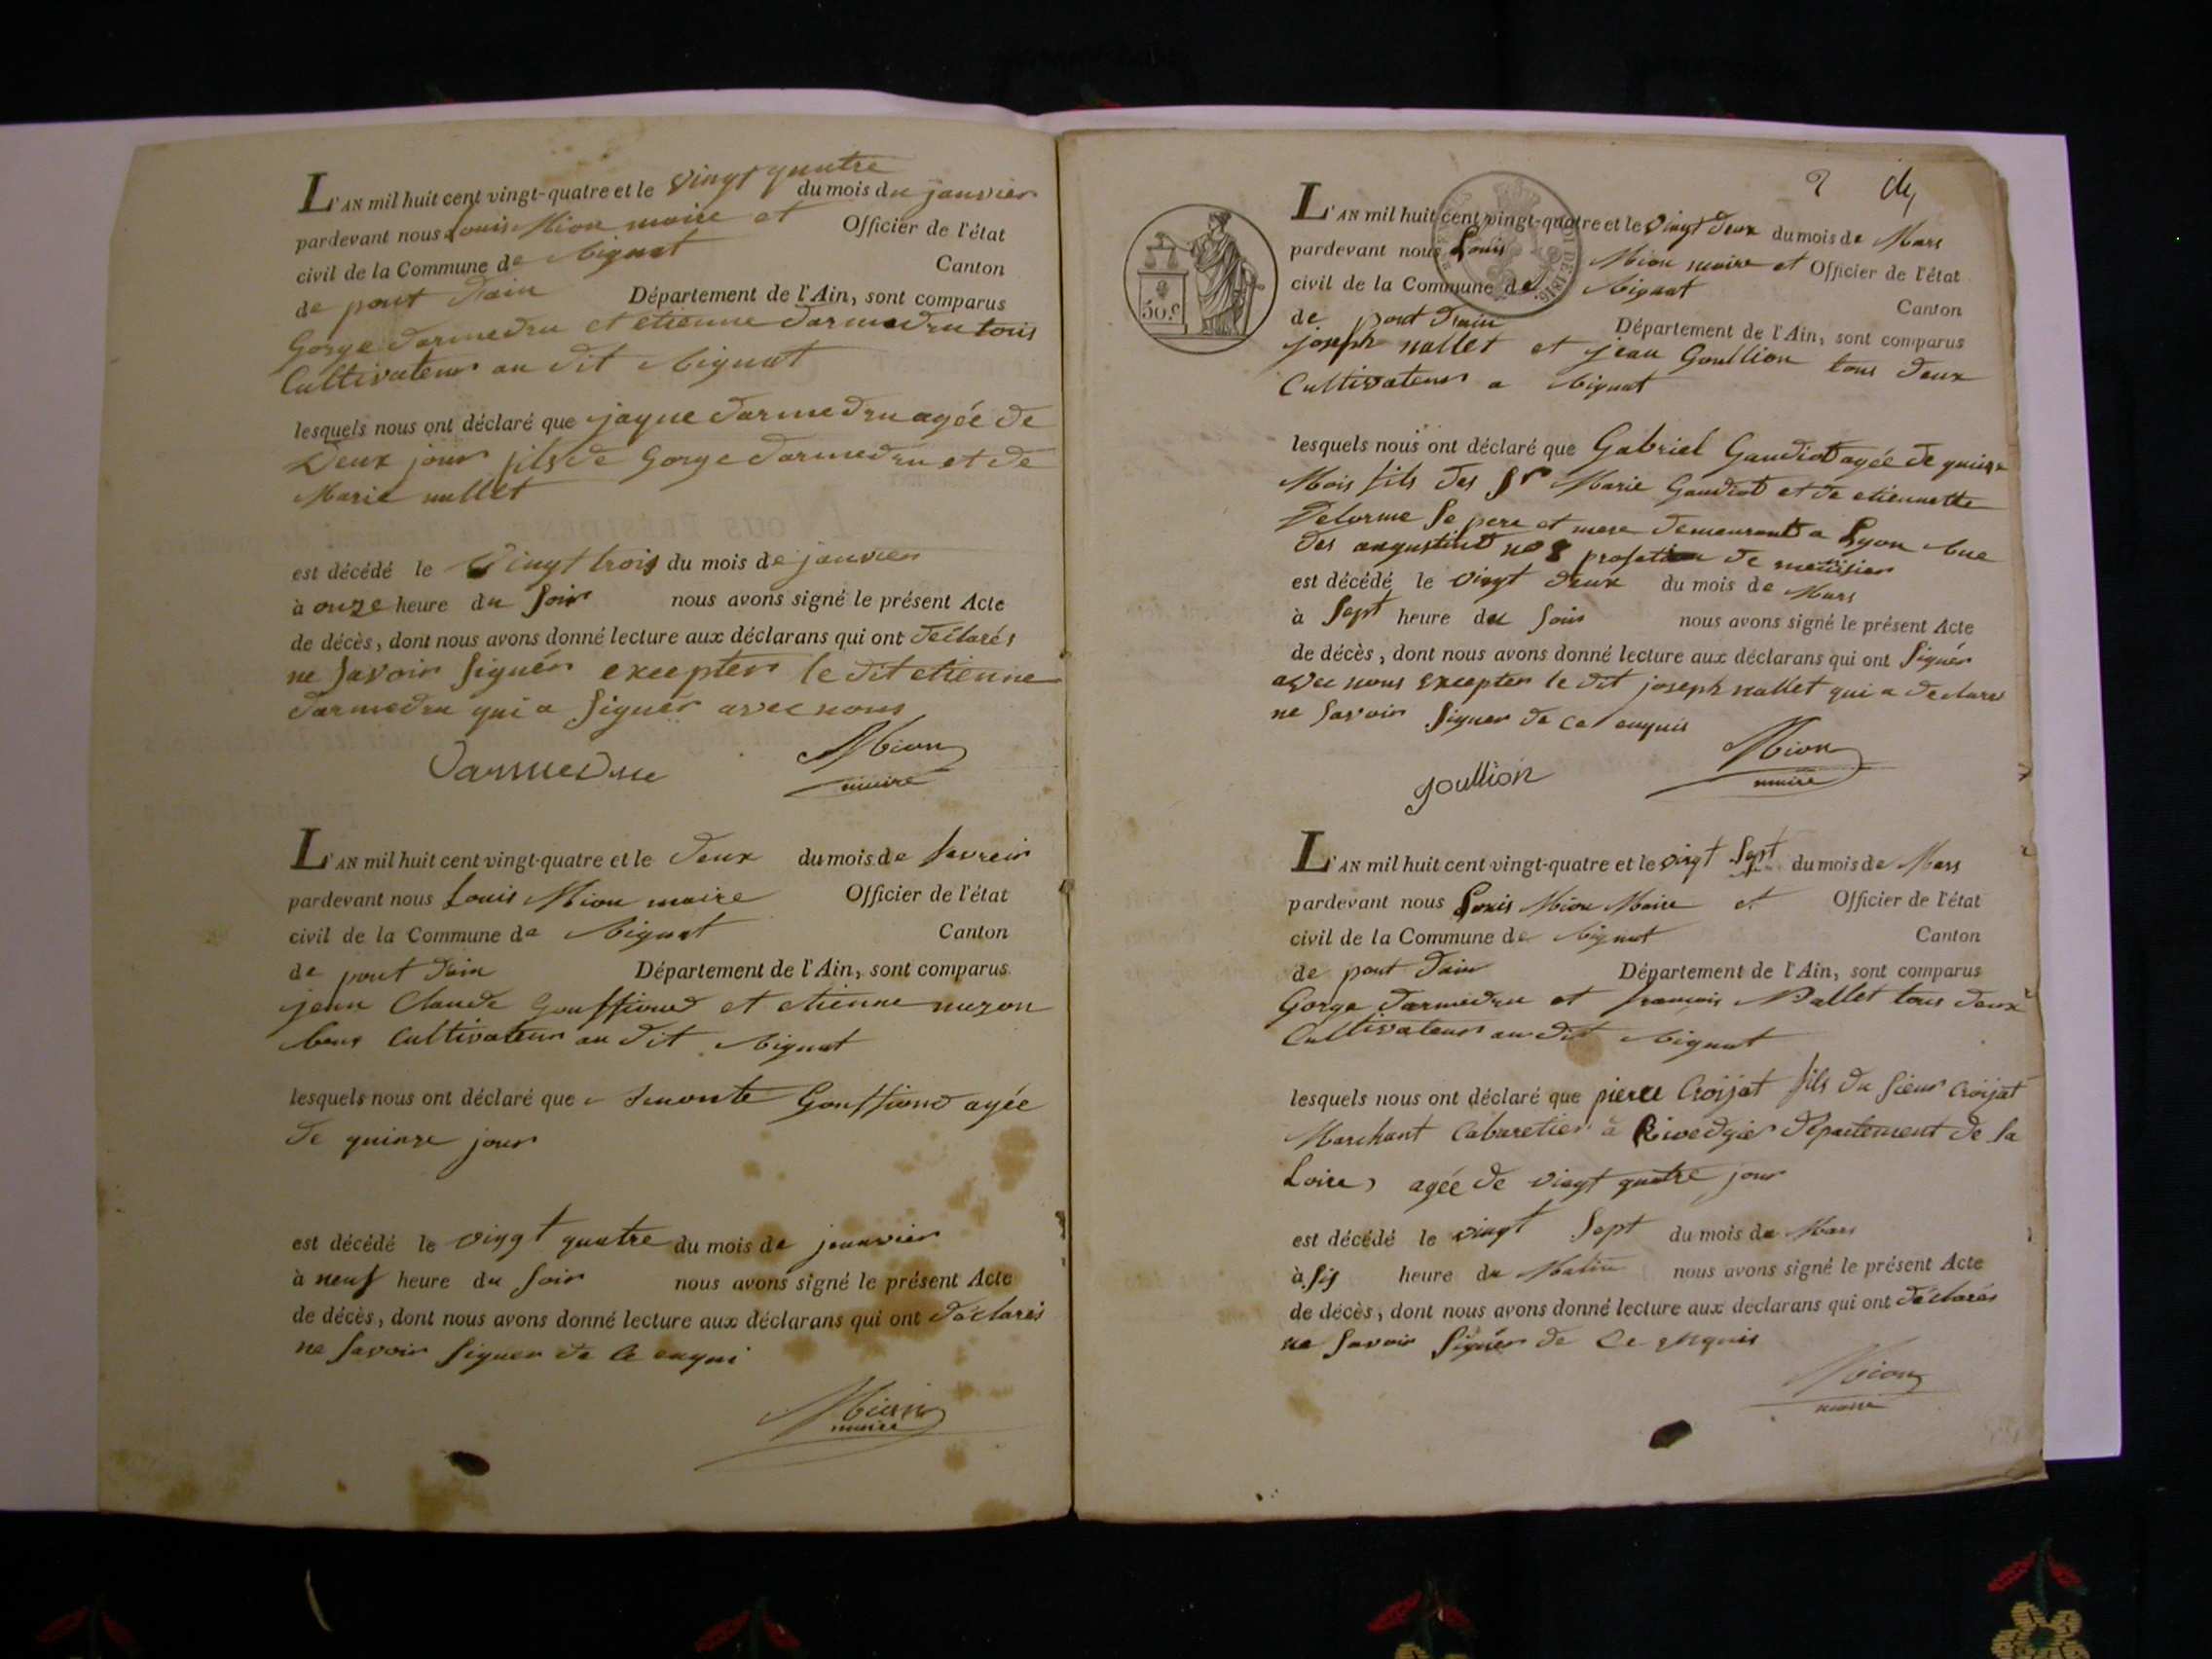 L'AN mil huit cent vingt-quatre et le vingt quatre du mois du janvier
pardevant nous Louis Mion maire et Officier de l'état
civil de la Commune de Canton
de pont dain Département de l'Ain, sont comparus
Gorge darmedru et etienne darmedru tous
Cultivateur au dit
lesquels nous ont déclaré que jaque darmedru agée de
Deux jour fils de Gorge darmedru et de
Marie nallet
est décédé le Vingt trois du mois de janvier
à onze heure du soir nous avons signé le présent Acte
de décès, dont nous avons donné lecture aux déclarans qui ont déclarés
ne savoir signér excepter le dit etienne
darmedru qui a signér avec nous
Darmedru Mion
maire
L'AN mil huit cent vingt-quatre et le deux du mois de fevreir
pardevant nous Louis Mion maire Officier de l'état
civil de la Commune de Canton
de pont dain Département de l'Ain, sont comparus
jean Claude et etienne
Cultivateur au dit
lesquels nous ont déclaré que agée
de quinze jour
est décédé le vingt quatre du mois de
à neuf heure du soir nous avons signé le présent Acte
de décès, dont nous avons donné lecture aux déclarans qui ont déclarés
ne savoir signer de ce enqui
Mion
maire
2
50 c.
L'AN mil huit cent vingt-quatre et le Vingt deux du mois de Mars
pardevant nous Louis Mion maire et Officier de l'état
civil de la Commune de Canton
de pont dain Département de l'Ain, sont comparus
joseph nallet et jean Goullion tous deux
Cultivateur a
lesquels nous ont déclaré que Gabriel Gaudiot agée de quinze
Mois fils des Sr Marie Gaudiot et de etiennette
Delorme Se pere et mere demeurant a Lyon Rue
des augustint no 8 de
est décédé le vingt deux du mois de Mars
à Sept heure du soir nous avons signé le présent Acte
de décès, dont nous avons donné lecture aux déclarans qui ont signér
avec nous excepter le dit joseph nallet qui a declarer
ne savoir signer de ce enquis
goullion Mion
maire
L'AN mil huit cent vingt-quatre et le vingt sept du mois de Mars
pardevant nous Louis Mion Maire et Officier de l'état
civil de la Commune de Canton
de pont dain Département de l'Ain, sont comparus
Gorge darmedru et francois Nallet tous deux
Cultivateur au dit
lesquels nous ont déclaré que pierre Croijat fils du sieur Croijat
Marchant Cabaretier à département de la
Loire, agée de vingt quatre jour
est décédé le vingt sept du mois du Mars
à sis heure du Matin nous avons signé le présent Acte
de décès, dont nous avons donné lecture aux déclarans qui ont déclarés
ne savoir signér de ce enquis
Mion
maire